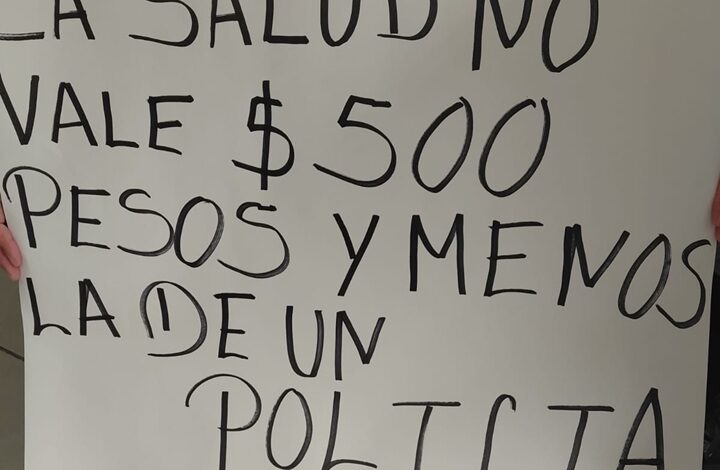 LA SALUD NO
VALE $500
PESOS Y MENOS
LA DE UN
POLICIA